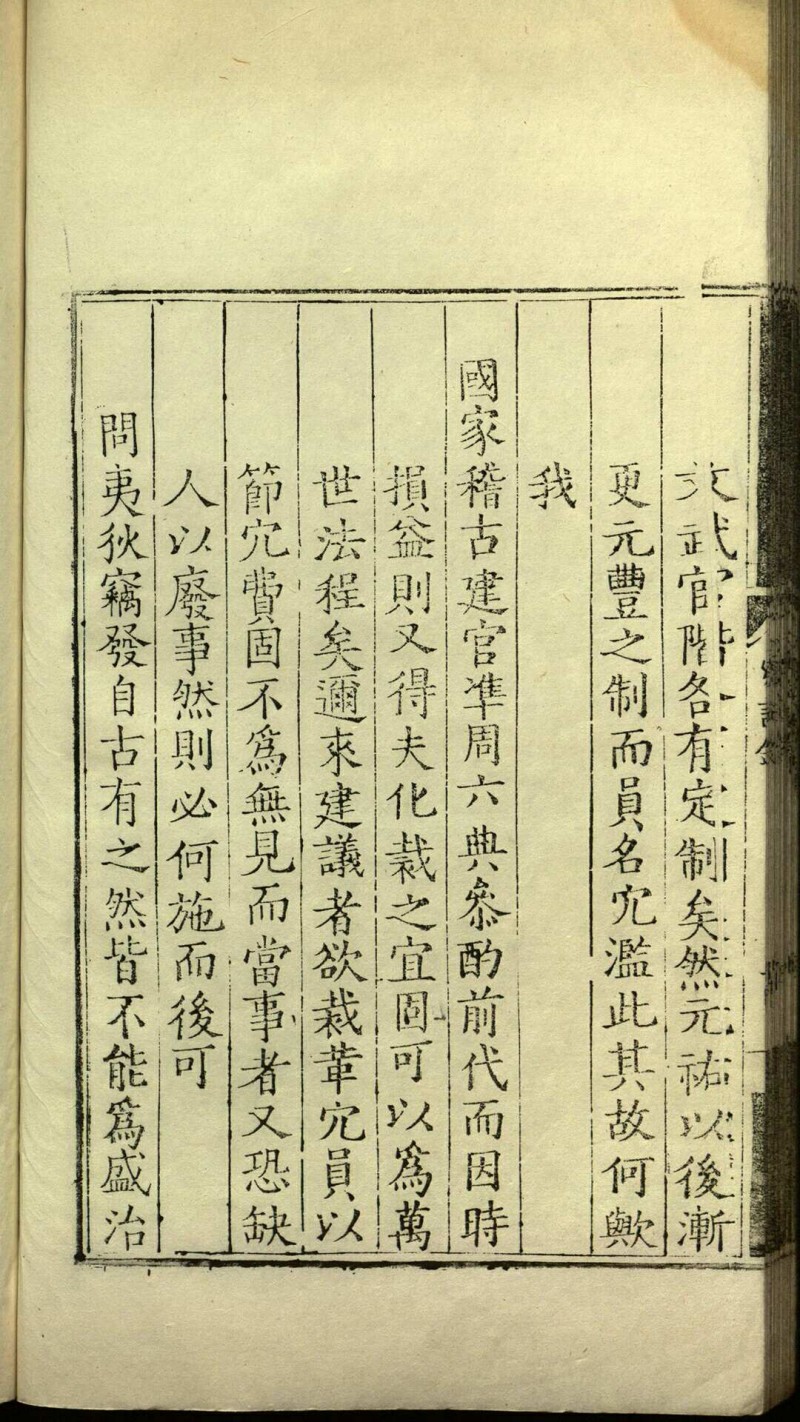 文武官階各有定制矣然元祐以後漸
更元豐之制而員名冗濫此其故何歟
我
國家稽古建官準周六典叅酌前代而因時
損益則又得夫化裁之宜固可以爲萬
世法程矣邇來建議者欲裁革冗員以
節冗費固不爲無見而當事者又恐缺
人以廢事然則必何施而後可
問夷狄竊發自古有之然皆不能爲盛治